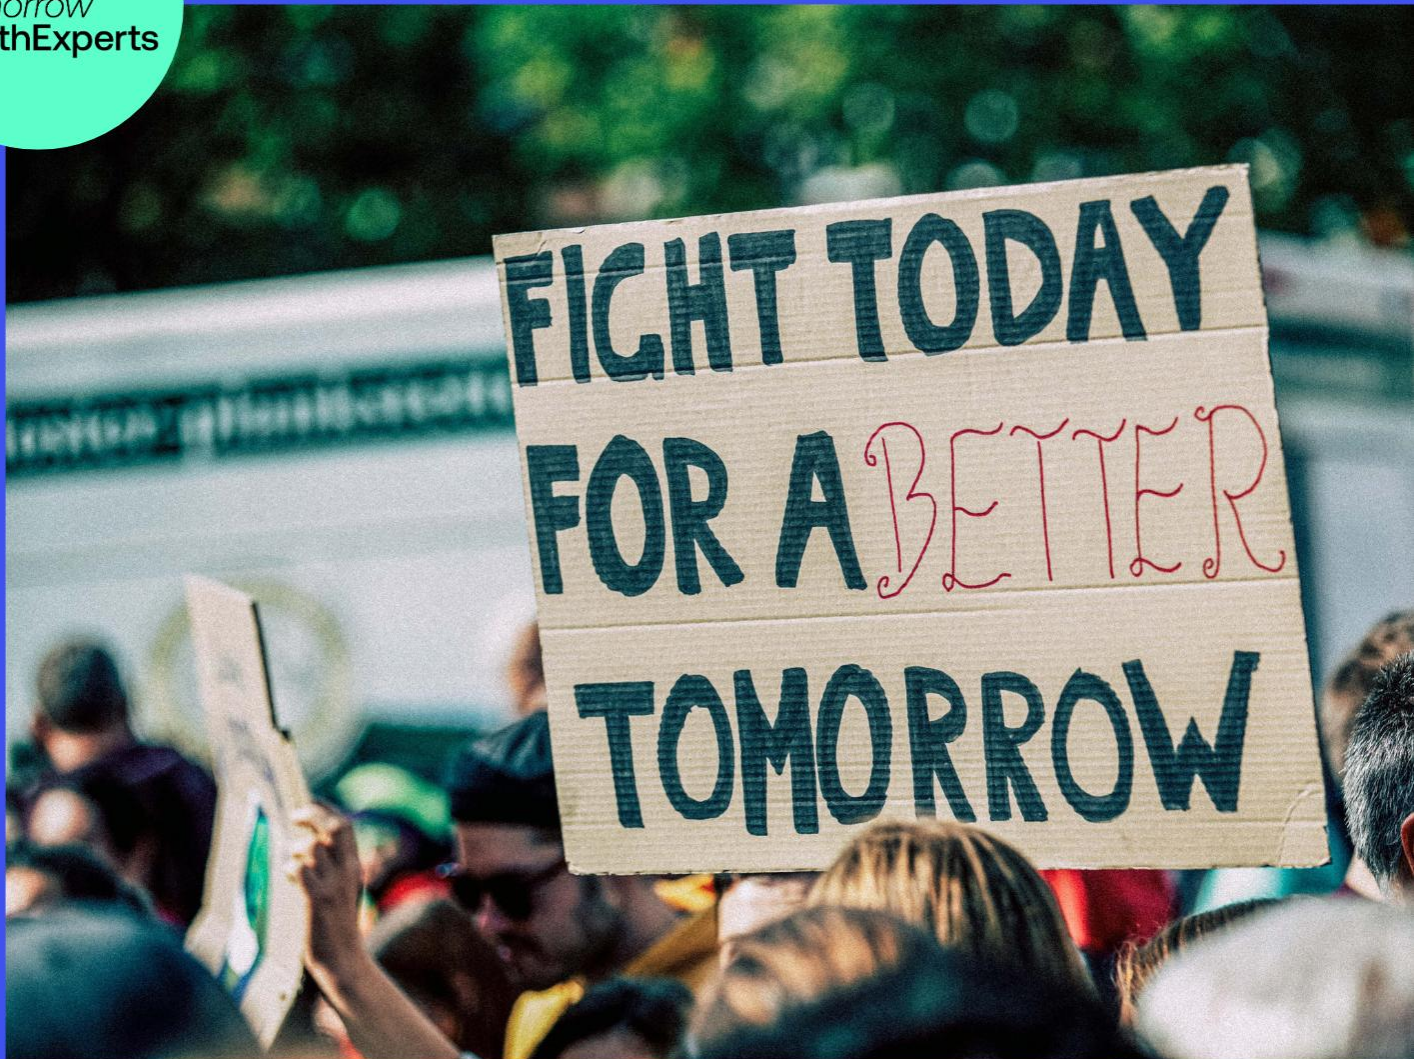 thExperts
FIGHT TODAY
FOR A BETTER
TOMORROW